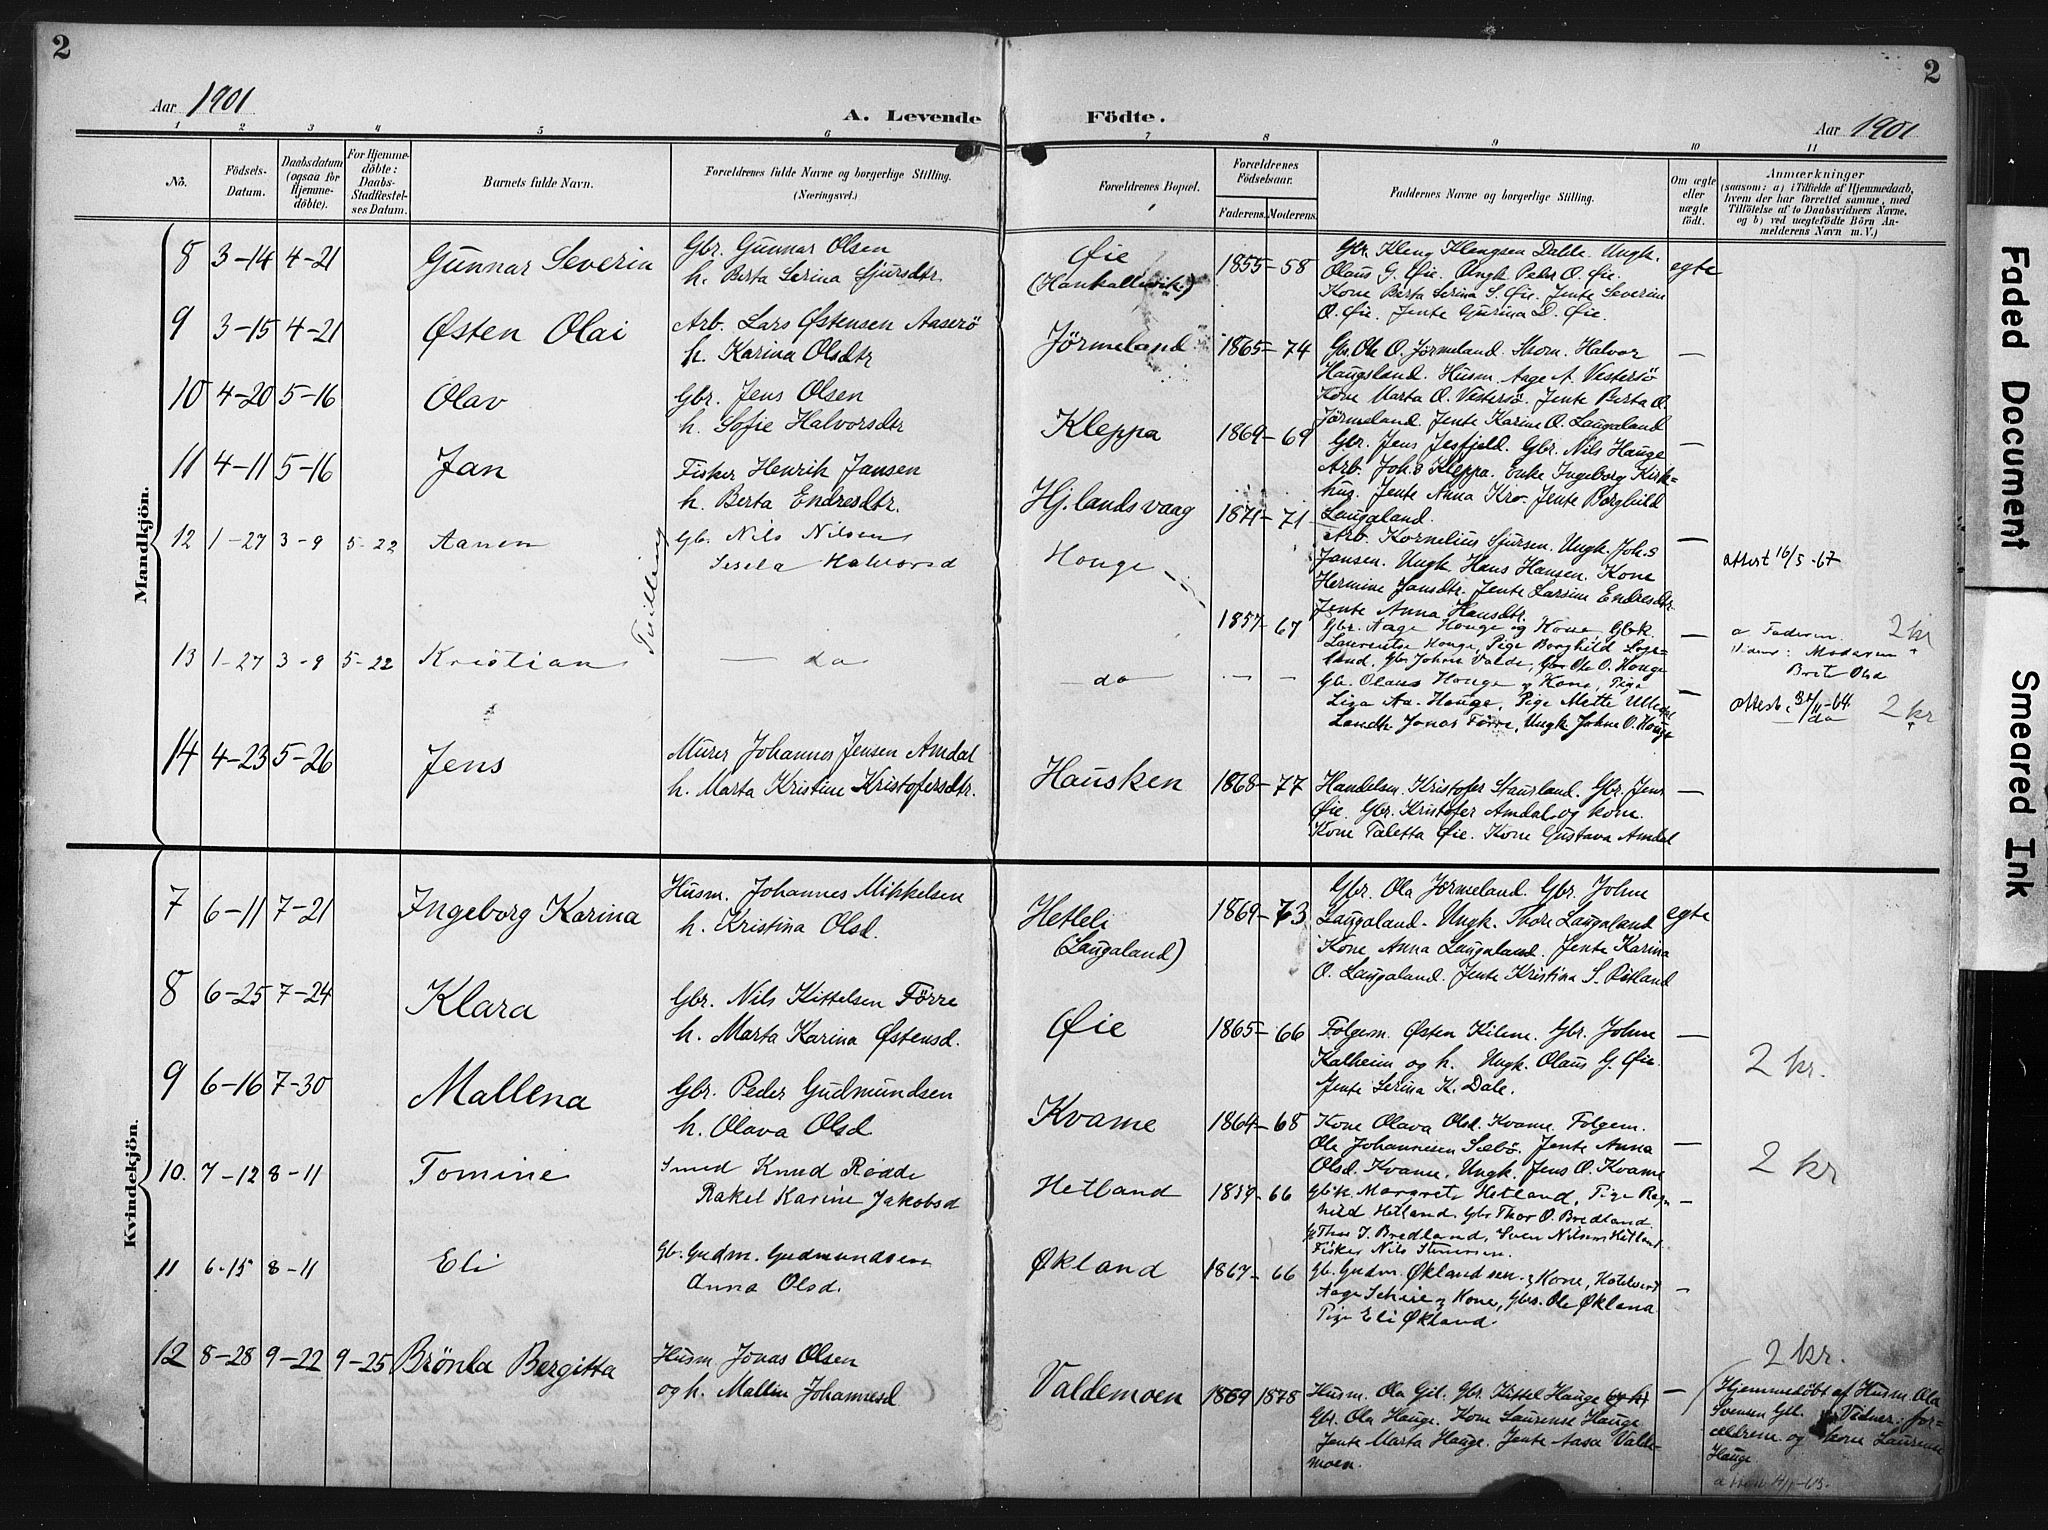 2
2
Aar 1901
A. Levende Födte.
Aar 1901
1 2 3 4 5 6 7 8 9 10 11
No.
Födsels-Datum.
Daabsdatum (ogsaa for Hjemme-döbte).
For Hjemme-döbte: Daabs-Stadfæstel-ses Datum.
Barnets fulde Navn.
Forældrenes fulde Navne og borgerlige Stilling. (Næringsvei.)
Forældrenes Bopæl.
Forældrenes Födselsaar.
Faderens. Moderens.
Faddernes Navne og borgerlige Stilling.
Om ægte eller uægte födt.
Anmærkninger
(saasom: a) i Tilfælde af Hjemmedaab,
hvem der har forrettet samme, med
Tilföielse af to Daabsvidners Navne.
og b) ved uægtefödte Börn An-
melderens Navn m. V.)
Mandkjön.
8 3-14 4-21 Gunnar Severin
Gbr. Gunnar Olsen
h. Berta Serina Sjursdtr.
Øie
1855-58
Gbr. Kleng Klengsen Dalde. Ungk.
Olaus G. Øie. Ungk. Peder O. Øie.
Kone Berta Serina S. Øie. Jente Severine
O. Øie. Jente Gurina D. Øie.
egte
9 3-15 4-21 Østen Olai
Arb. Lars Østensen Aaserö
h. Karina Olsdtr
Jörmeland
1865-74
Gbr. Ole O. Jörmeland. Skom. Halvor
Haugsland. Husm. Aage A. Vestersö
Kone Marta O. Vestersö. Jente Berta O.
Jörmeland. Jente Karine O. Laugaland
—
10 4-20 5-16 Olav
Gbr. Jens Olsen
h. Sofie Halvorsdtr
Kleppa
1869-69
Gbr. Jens Jesfjeld. Gbr. Nils Hauge
Arb. Joh.s Kleppa. Enke Ingeborg Kirk-
hug. Jente Anna Kro. Jente Borghild
Laugaland.
—
11 4-11 5-16 Jan
Fisker Henrik Jansen
h. Berta Endresdtr.
Hj.landsvaag
1871-71
Arb. Kornelius Sjursen. Ungk. Joh.s
Jansen. Ungk. Hans Hansen. Kone
Hermine Jansdtr. Jente Larsine Endresdtr.
Jente Anna Hansdtr.
—
12 1-27 3-9 5-22
Tvilling
Gb. Nils Nilsen
Sesela Halvorsd
Houge
1857-67
Gbr. Aage Houge og Kone, Gbk.
Laurentse Houge, Pige Borghild
Gbr. Johne Valde, Gbr Ole O. Houge
—
attest 16/5-67
a Faderen. 2 kr
Vidner: Moderen
13 1-27 3-9 5-22 Kristian
— do
— do
— —
Gb. Olaus Houge og Kone, Pige
Liza Aa. Houge, Pige Mette
Landh. Jonas Førre, Ungk Johne O. Houge
—
— do 2 kr
14 4-23 5-26 Jens
Murer Johannes Jensen Amdal
h. Marta Kristine Kristofersdtr.
Hausken
1868-77
Handelsm. Kristofer Staurland. Gbr. Jens
Øie. Gbr. Kristofer Amdal og kone.
Kone Taletta Øie. Kone Gustava Amdal
—
Kvindekjön.
7 6-11 7-21 Ingeborg Karina
Husm. Johannes Mikkelsen
h. Kristina Olsd.
Hetleli
(Laugaland)
1869-73
Gbr. Ola Jörmeland. Gbr. Johne
Laugaland. Ungk. Thore Laugaland
Kone Anna Laugaland. Jente Karina
O. Laugaland. Jente Kristina S.
egte
8 6-25 7-24 Klara
Gbr. Nils Kittelsen Förre
h. Marta Karina Østensd.
Øie
1865-66
Folgem. Østen Kilene. Gbr. Johne
Kalheim og h. Ungk. Olaus G. Øie.
Jente Serina K. Dale.
—
2 kr.
9 6-16 7-30 Mallena
Gbr. Peder Gudmundsen
h. Olava Olsd
Kvame
1864-68
Kone Olava Olsd. Kvame. Folgem.
Ole Johannesen Sæbö. Jente Anna
Olsd. Kvame. Ungk. Jens O. Kvame
—
2 kr
10. 7-12 8-11 Tomine
Smed Knud Rødde
Rakel Karine Jakobsd
Hetland
1859-66
Gbk. Margrete Hetland, Pige Rag-
nild Hetland. Gbr Thor O. Bredland.
Thor J. Bredland, Sven Nilsen Hetland
Fisker Nils
—
11 6-15 8-11 Eli
Gb. Gudm. Gudmundsen
Anna Olsd.
Økland
1867-66
Gb. Gudm. Økland sen. og Kone,
Aage og Kone, Gbr. Ole Økland
Pige Eli Økland.
—
12 8-28 9-22 9-25 Brönla Bergitta
Husm. Jonas Olsen
og h. Mallin Johannesd
Valdemoen
1869 1878
Husm. Ola Gil. Gbr. Kittel Hauge
Gbr. Ola Hauge. Kone Laurense Hauge
Jente Marta Hauge. Jente Aasa Valde-
moen.
—
2 kr.
Hjemmedöbt af Husm. Ola
Svensen Gil. Vidner: for-
ældrene og kone Laurense
Hauge
Faded Document
Smeared Ink